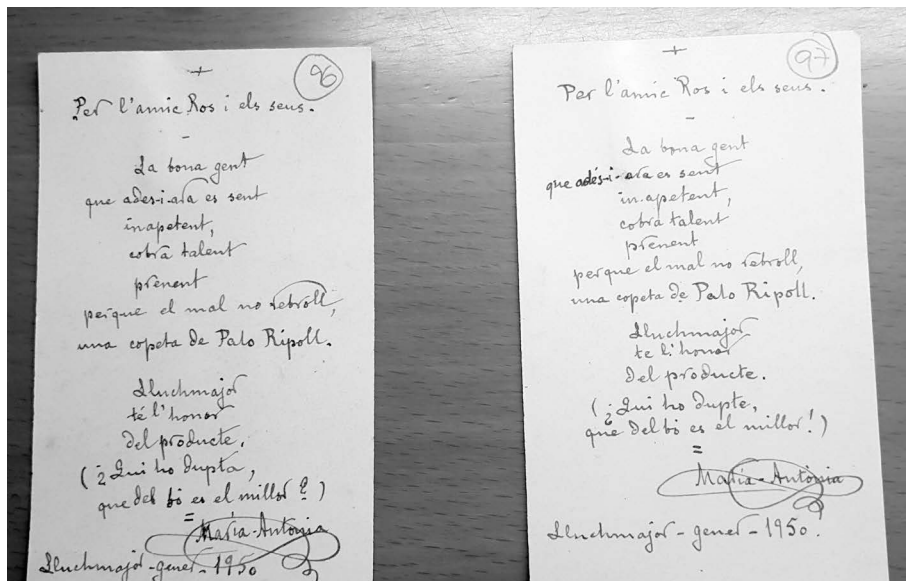 +
96
Per l'amic Ros i els seus.
-
La bona gent
que adés-i-ara es sent
inapetent,
cobra talent
prenent
perque el mal no rebroll,
una copeta de Palo Ripoll.
Lluchmajor
té l'honor
del producte.
(¿Qui ho dupta,
que del bó es el millor?)
=
Maria-Antònia
Lluchmajor-gener-1950
+
97
Per l'amic Ros i els seus.
-
La bona gent
que adés-i-ara es sent
in.apetent,
cobra talent
prenent
perque el mal no rebroll,
una copeta de Palo Ripoll.
Lluchmajor
te l'honor
del producte.
(¿Qui ho dupte,
que del bò es el millor!)
=
Maria-Antònia
Lluchmajor-gener-1950.